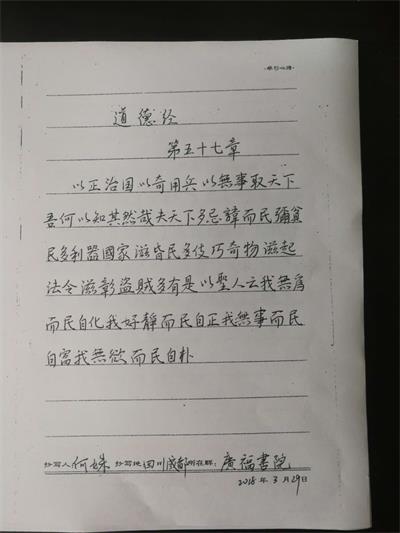 道德经
第五十七章
以正治国以奇用兵以無事取天下
吾何以知其然哉夫天下多忌諱而民彌貧
民多利器國家滋昏民多伎巧奇物滋起
法令滋彰盜賊多有是以聖人云我無爲
而民自化我好靜而民自正我無事而民
自富我無欲而民自朴
抄写人何姝 抄写地四川成都所在群：廣福書院
2018年3月29日